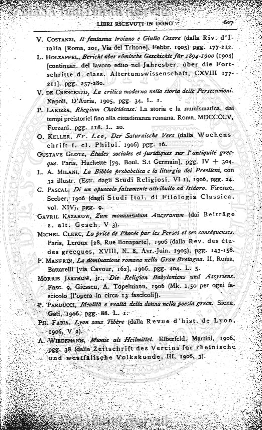 LIBRI RICEVUTI IN DONO 607
V. COSTANZI, Il fantasma troiano e Giulio Cesare (dalla Riv. d'I-
talia (Roma, 201, Via del Tritone), Febbr. 1905) pgg. 177-212.
L. HOLZAPFEL, Bericht über römische Geschichte für 1894-1900 (1905)
[continuaz. del lavoro edito nel Jahresber. über die Fort-
schritte d. class. Altertumswissenschaft, CXVIII 177-
211]. pgg. 257-280.
V. DE CRESCENZO, La critica moderna nella storia delle Persecuzioni.
Napoli, D'Auria, 1905. pgg. 34. L. 2.
P. LARIZZA, Rhegium Chalcidense. La storia e la numismatica, dai
tempi preistorici fino alla cittadinanza romana. Roma, MDCCCCV,
Forzani. pgg. 118. L. 20.
O. KELLER, Fr. Leo, Der Saturnische Vers (dalla Wochens
chrift f. cl. Philol. 1906) pgg. 16.
GUSTAVE GLOTZ, Études sociales et juridiques sur l'antiquité grec-
que. Paris, Hachette [79, Boul. S.t Germain]. pgg. IV + 304.
L. A. MILANI, La Bibbia prebabelica e la liturgia dei Preelleni, con
32 illustr. (Estr. dagli Studi Religiosi, VI 1), 1906, pgg. 24.
C. PASCAL, Di un opuscolo falsamente attribuito ad Isidoro. Firenze,
Seeber, 1906 (dagli Studi Ital. di Filologia Classica,
vol. XIV). pgg. 9.
GAVRIL KAZAROW, Zum monumentum Ancyranum (dai Beiträge
z. alt. Gesch. V 3).
MICHEL CLERC, La prise de Phocée par les Perses et ses conséquences.
Paris, Leroux [28, Rue Bonaparte], 1906 (dalla Rev. des étu-
des grecques, XVIII, N. 8, Avr.-Juin, 1905), pgg. 143-158.
F. MANFREDI, La dominazione romana nella Gran Bretagna. II. Roma,
Botturelli [via Cavour, 160], 1906, pgg. 104. L. 5.
MORRIS JASTROW, jr., Die Religion Babyloniens und Assyriens.
Fasc. 9, Giessen, A. Töpelmann, 1906 (Mk. 1.50 per ogni fa-
scicolo [l'opera in circa 13 fascicoli]).
P. PARDUCCI, Idealità e realtà della donna nella poesia greca. Siena,
Gati, 1906. pgg. 88. L. 1.
PH. FABIA, Lyon sous Tibère (dalla Revue d'hist. de Lyon,
1906, V 2).
A. WIEDEMANN, Mumie als Heilmittel. Elberfeld, Martini, 1906,
pgg. 38 (dalla Zeitschrift des Vereins für rheinische
und westfälische Volkskunde, III. 1906, 3).